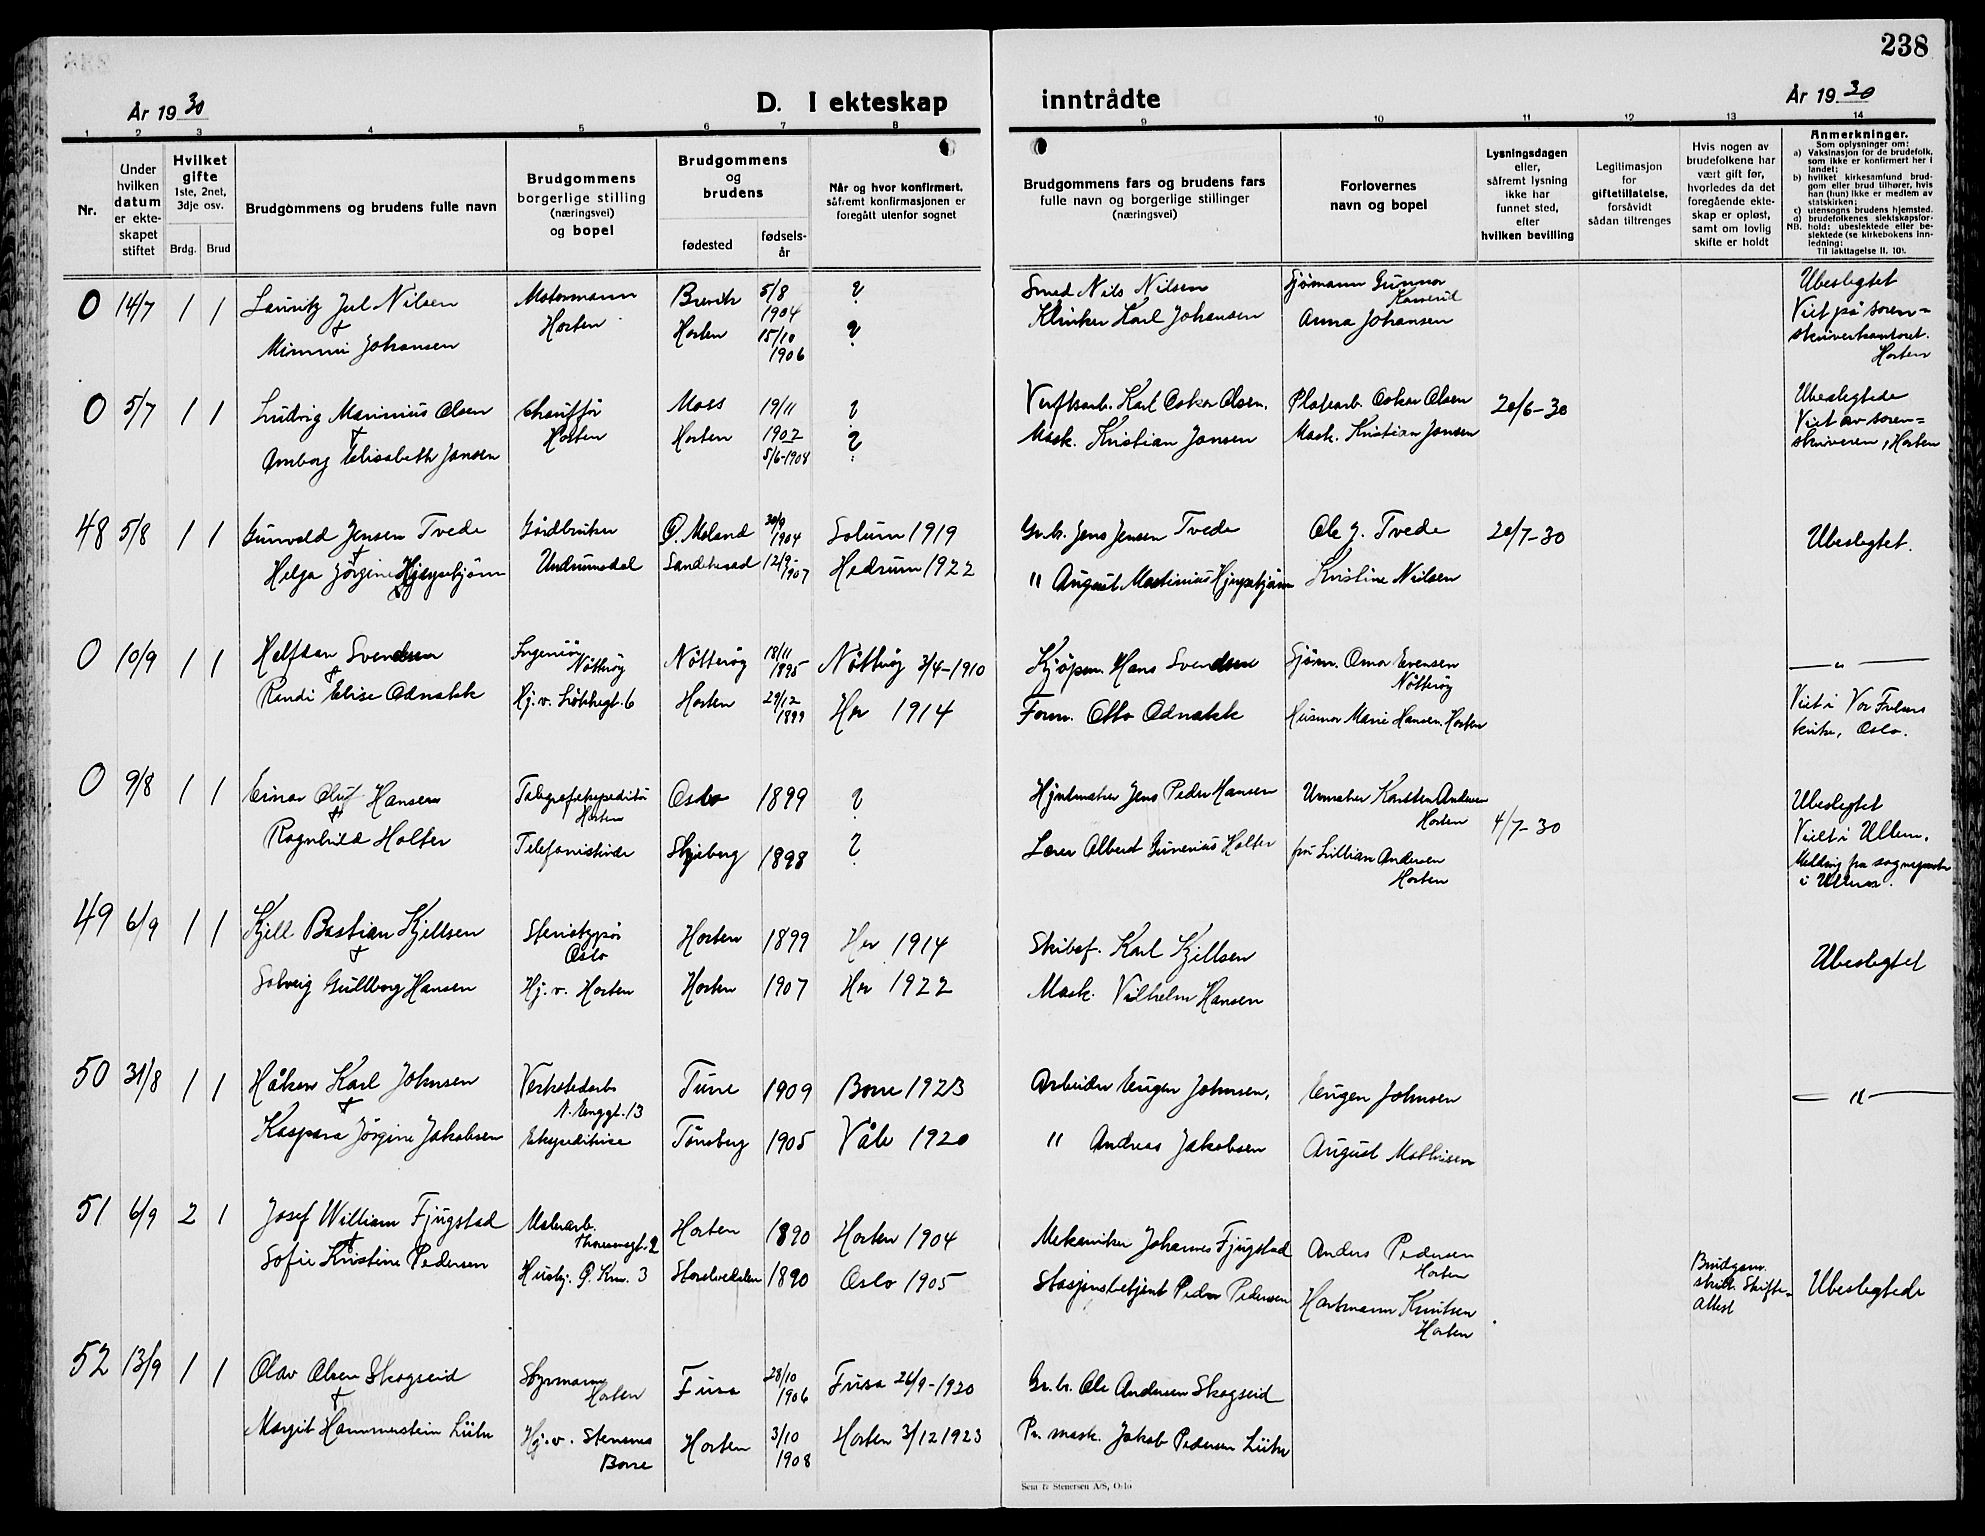 238
År 19 30
D. I ekteskap inntrådte
År 19 30
1 2 3 4 5 6 7 8 9 10 11 12 13 14
Nr.
Under hvilken datum er ekteskapet stiftet
Hvilket gifte 1ste, 2net, 3dje osv.
Brdg. Brud
Brudgommens og brudens fulle navn
Brudgommens borgerlige stilling (næringsvei) og bopel
Brudgommens og brudens
fødested
fødselsår
Når og hvor konfirmert, såfremt konfirmasjonen er foregått utenfor sognet
Brudgommens fars og brudens fars fulle navn og borgerlige stillinger (næringsvei)
Forlovernes navn og bopel
Lysningsdagen eller, såfremt lysning ikke har funnet sted, efter hvilken bevilling
Legitimasjon for giftetillatelse, forsåvidt sådan tiltrenges
Hvis nogen av brudefolkene har vært gift før, hvorledes da det foregående ekteskap er opløst, samt om lovlig skifte er holdt
Anmerkninger.
Som oplysninger om:
a) Vaksinasjon for de brudefolk, som ikke er konfirmert her i landet;
b) hvilket kirkesamfund brudgom eller brud tilhører, hvis han (hun) ikke er medlem av statskirken;
c) utensogns brudens hjemsted.
d) brudefolkenes slektskapsforhold: ubeslektede eller beslektede (se kirkebokens innledning:
NB. Til iakttagelse II. 10).
0 14/7 1 1 Lauritz Jul Nilsen Motormann Brevik 5/8 1904 ? Smed Nils Nilsen Sjømann Gunnar Ubeslegtet
+ Horten Viet på soren=
Mimmi Johansen Horten 15/10 1906 ? Klinker Karl Johansen Anna Johansen skriverkontoret.
Horten
0 5/7 1 1 Ludvig Marinius Olsen Chauffør Moss 19/11 1902 ? Verftsarb. Karl Oskar Olsen. Platearb. Oskar Olsen 20/6-30 Ubeslegtede
+ Horten Viet av soren=
Elisabeth Jansen Horten 5/6-1908 ? Mask. Kristian Jansen Mask. Kristian Jansen skriveren, Horten
48 5/8 1 1 Gunvald Jensen Tvede Gårdbruker Ø. Moland 30/9 1904 Solum 1919 Gr.br. Jens Jensen Tvede Ole J. Tvede 20/7-30 Ubeslegtet.
+ Undrumsdal
Helga Jørgine Sandeherad 12/9 1907 Hedrum 1922 " August Martinius Kristine Nilsen
0 10/9 1 1 Halfdan Svendsen Ingeniør Nøtterøy Nøtterøy 18/11 1895 Nøtterøy 3/4-1910 Kjøpm. Hans Svendsen Sjøm. Evensen — " —
+ Nøtterøy
Randi Elise Odnakk Hj. v. Horten 29/12 1899 Her 1914 Form. Otto Odnakk Husmor Marie Hansen. Horten Viet i Vor Frelsers
kirke, Oslo.
0 9/8 1 1 Einar Oluf Hansen Telegrafekspeditør Oslo 1899 ? Jens Peder Hansen Urmaker Karsten Andersen 4/7-30 Ubeslegtet
+ Horten Horten Viet i Ullern.
Ragnhild Holter Telefonistinde Skjeberg 1898 ? Lærer Albert Gunerius Holter fru Lillian Andersen Melding fra sogneprest
Horten i Ullern.
49 6/9 1 1 Kjell Bastian Kjellsen Stereotypør Horten 1899 Her 1914 Skibsf. Karl Kjellsen Ubeslegtet
+ Oslo
Solveig Gullborg Hansen Hj. v. Horten Horten 1907 Her 1922 Mask. Vilhelm Hansen
50 31/8 1 1 Håkon Karl Johnsen Verkstedarb Tune 1909 Borre 1923 Arbeider Eugen Johnsen, Eugen Johnsen — " —
+ N. Enggt. 13
Kaspara Jørgine Jakobsen Ekspeditrise Tønsberg 1905 Våle 1920 " Andreas Jakobsen August Mathisen
51 6/9 2 1 Josef William Fjugstad Malerarb. Horten 1890 Horten 1904 Mekaniker Johannes Fjugstad Anders Pedersen
+ Horten
Sofie Kristine Pedersen Husbj. Ø. Km. 3 1890 Oslo 1905 Stasjonsbetjent Peder Pedersen Hartmann Knutsen Brudgom. Skifte- Attest Ubeslegtede
Horten
52 13/9 1 1 Olav Olsen Skogseid Styrmann Fusa 28/10 1906 Fusa 26/9-1920 Gr.br. Ole Andersen Skogseid
+ Horten
Margit Hammerstein Lühr Hj. v. Stensnes Horten 3/10 1908 Horten 3/12 1923 Pr. mask. Jakob Pedersen Lühr
Borre
Sem & Stenersen A/S, Oslo